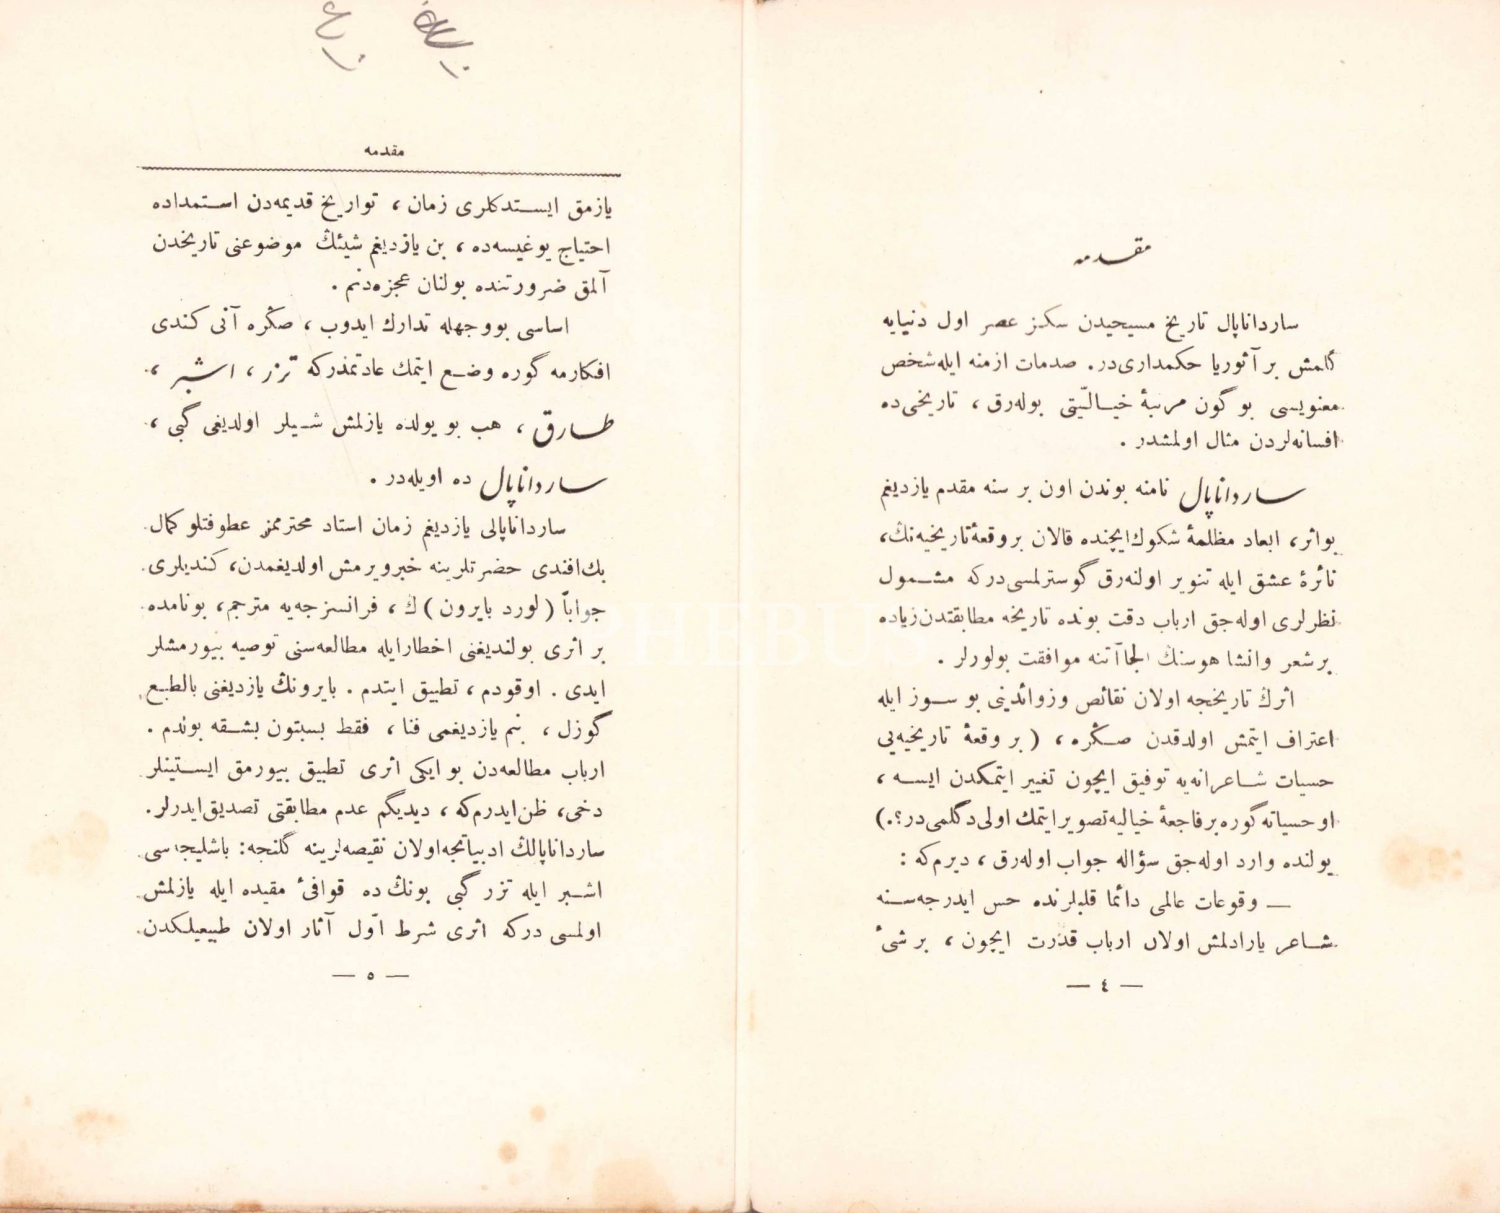 مقدمه
ساردانپال تاريخ مسيحيدن سكز عصر اول دنيايه
گلمش بر آثوريا حكمداری‌در. صدمات ازمنه ايله شخص
معنويسی بو گون مرتبهٔ خياليّتی بوله‌رق ، تاريخی ده
افسانه‌لردن مثال اولمشدر .
ساردانپال نامنه بوندن اون بر سنه مقدم يازديغم
بواثر، ابعاد مظلمهٔ شكوك ايچنده قالان بر وقعهٔ تاريخيه‌نڭ،
نائرهٔ عشق ايله تنوير اولنه‌رق گوسترلمسی‌دركه مشمول
نظرلری اوله‌جق ارباب دقت بونده تاريخه مطابقتدن زياده
بر شعر وانشا هوسنڭ الجاآتنه موافقت بولورلر .
اثرڭ تاريخجه اولان نقائص وزوائدينی بو سوز ايله
اعتراف ايتمش اولدقدن صڭره ، ( بر وقعهٔ تاريخيه‌يی
حسيات شاعرانه‌يه توفيق ايچون تغيير ايتمكدن ايسه ،
او حسياته گوره بر فاجعهٔ خياليه تصوير ايتمك اولی دگلمی‌در؟.)
يولنده وارد اوله‌جق سؤاله جواب اوله‌رق ، ديرم‌كه :
— وقوعات عالمی دائما قلبلرنده حس ايدرجه‌سنه
شاعر يارادلمش اولان ارباب قدرت ايچون ، بر شیٔ
— ٤ —
مقدمه
يازمق ايستدكلری زمان ، تواريخ قديمه‌دن استمداده
احتياج يوغيسه‌ده ، بن يازديغم شيئڭ موضوعنی تاريخدن
آلمق ضرورتنده بولنان عجزه‌دنم .
اساسی بووجهله تدارك ايدوب ، صڭره آنی كندی
افكارمه گوره وضع ايتمك عادتمدركه تزر ، اشبر ،
طارق ، هب بو يولده يازلمش شيلر اولديغی گبی ،
ساردانپال ده اويله‌در .
ساردانپالی يازديغم زمان استاد محترممز عطوفتلو كمال
بك افندی حضرتلرينه خبرويرمش اولديغمدن، كنديلری
جواباً ( لورد بايرون )ڭ ، فرانسزجه‌يه مترجم، بونامده
بر اثری بولنديغنی اخطارايله مطالعه‌سنی توصيه بيورمشلر
ايدی . اوقودم ، تطبيق ايتدم . بايرونڭ يازديغنی بالطبع
گوزل ، بنم يازديغمی فنا ، فقط بسبتون بشقه بولدم .
ارباب مطالعه‌دن بو ايكی اثری تطبيق بيورمق ايستينلر
دخی، ظن ايدرم‌كه ، ديديگم عدم مطابقتی تصديق ايدرلر.
ساردانپالڭ ادبياتجه اولان نقيصه‌لرينه گلنجه: باشليجه‌سی
اشبر ايله تزر گبی بونڭ ده قوافیٔ مقيده ايله يازلمش
اولمسی دركه اثری شرط اوّل آثار اولان طبيعيلكدن
— ٥ —